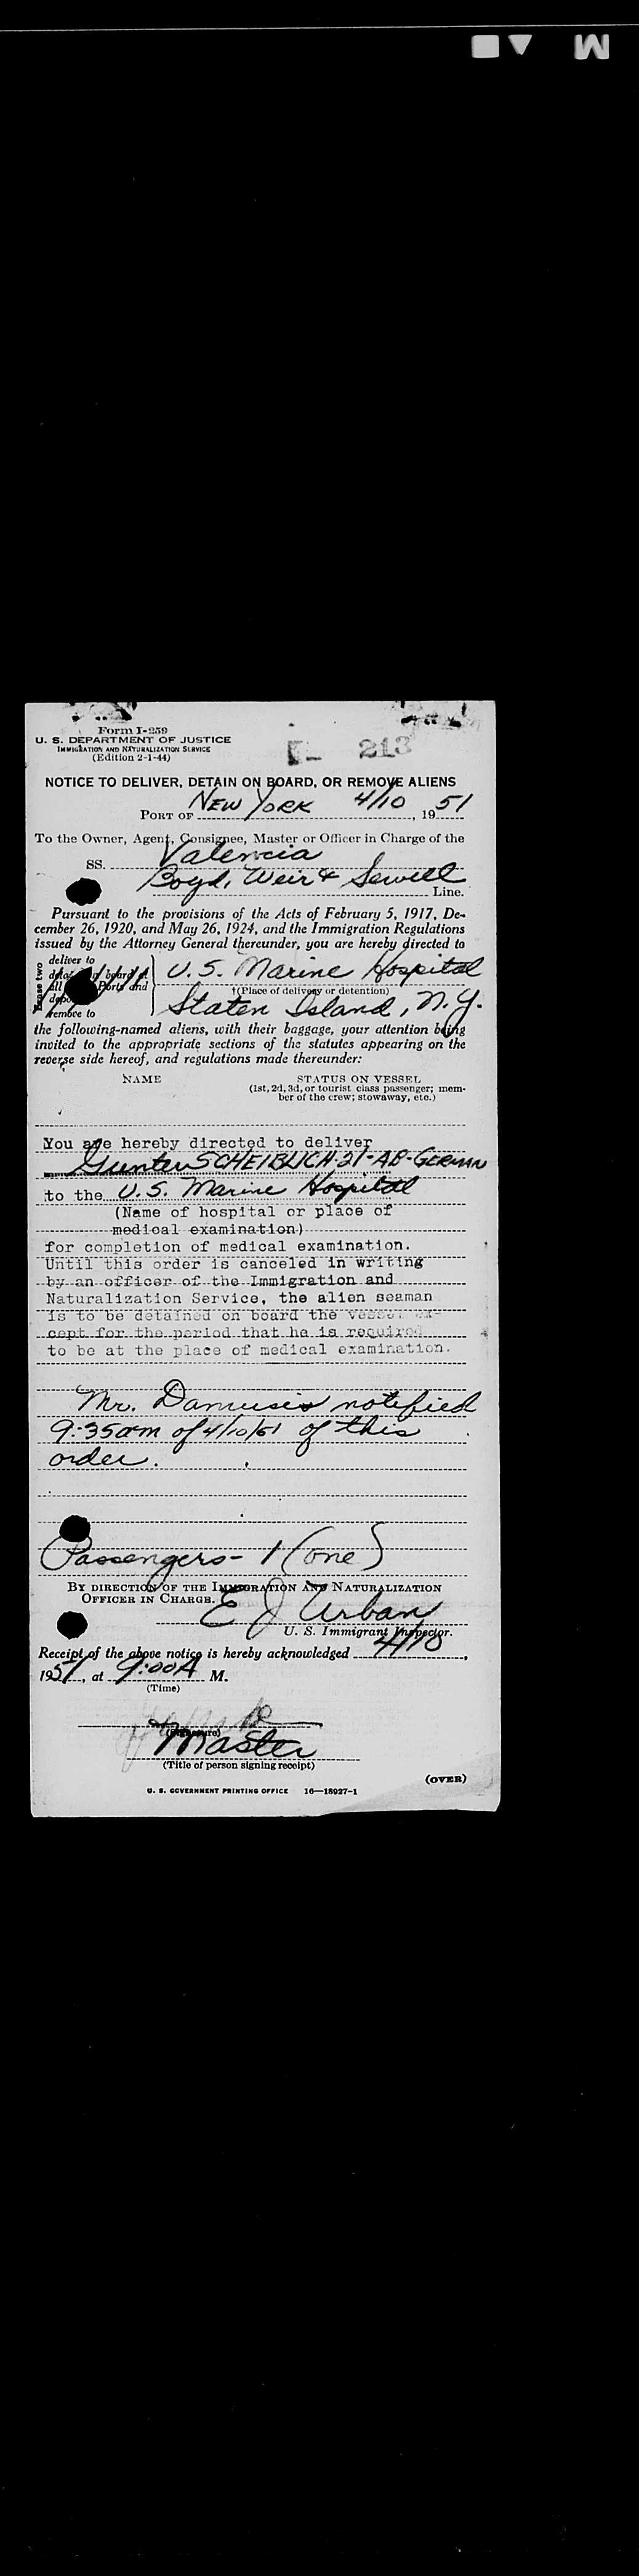 M
Form I-259
U. S. DEPARTMENT OF JUSTICE
IMMIGRATION AND NATURALIZATION SERVICE
(Edition 2-1-44)
213
NOTICE TO DELIVER, DETAIN ON BOARD, OR REMOVE ALIENS
PORT OF NEW YORK 4/10, 1951
To the Owner, Agent, Consignee, Master or Officer in Charge of the
SS. Valencia
Boyd, Weir & Sewell Line.
Pursuant to the provisions of the Acts of February 5, 1917, De-
cember 26, 1920, and May 26, 1924, and the Immigration Regulations
issued by the Attorney General thereunder, you are hereby directed to
Erase two
deliver to
board at
all Ports and
remove to
U. S. Marine Hospital
†(Place of delivery or detention)
Staten Island, N.Y.
the following-named aliens, with their baggage, your attention being
invited to the appropriate sections of the statutes appearing on the
reverse side hereof, and regulations made thereunder:
NAME STATUS ON VESSEL
(1st, 2d, 3d, or tourist class passenger; mem-
ber of the crew; stowaway, etc.)
You are hereby directed to deliver
Gunter SCHEIBLICH-21-AB-GERMAN
to the U.S. Marine Hospital
(Name of hospital or place of
medical examination)
for completion of medical examination.
Until this order is canceled in writing
by an officer of the Immigration and
Naturalization Service, the alien seaman
is to be detained on board the vessel ex-
cept for the period that he is required
to be at the place of medical examination.
Mr. Damusis notified
9:35am of 4/10/51 of this
order.
Passengers- 1 (one)
BY DIRECTION OF THE IMMIGRATION AND NATURALIZATION
OFFICER IN CHARGE.
E J Urban
U. S. Immigrant Inspector.
Receipt of the above notice is hereby acknowledged 4/10,
1951, at 9:00A M.
(Time)
(Signature)
Master
(Title of person signing receipt)
(OVER)
U. S. GOVERNMENT PRINTING OFFICE 16—18927-1